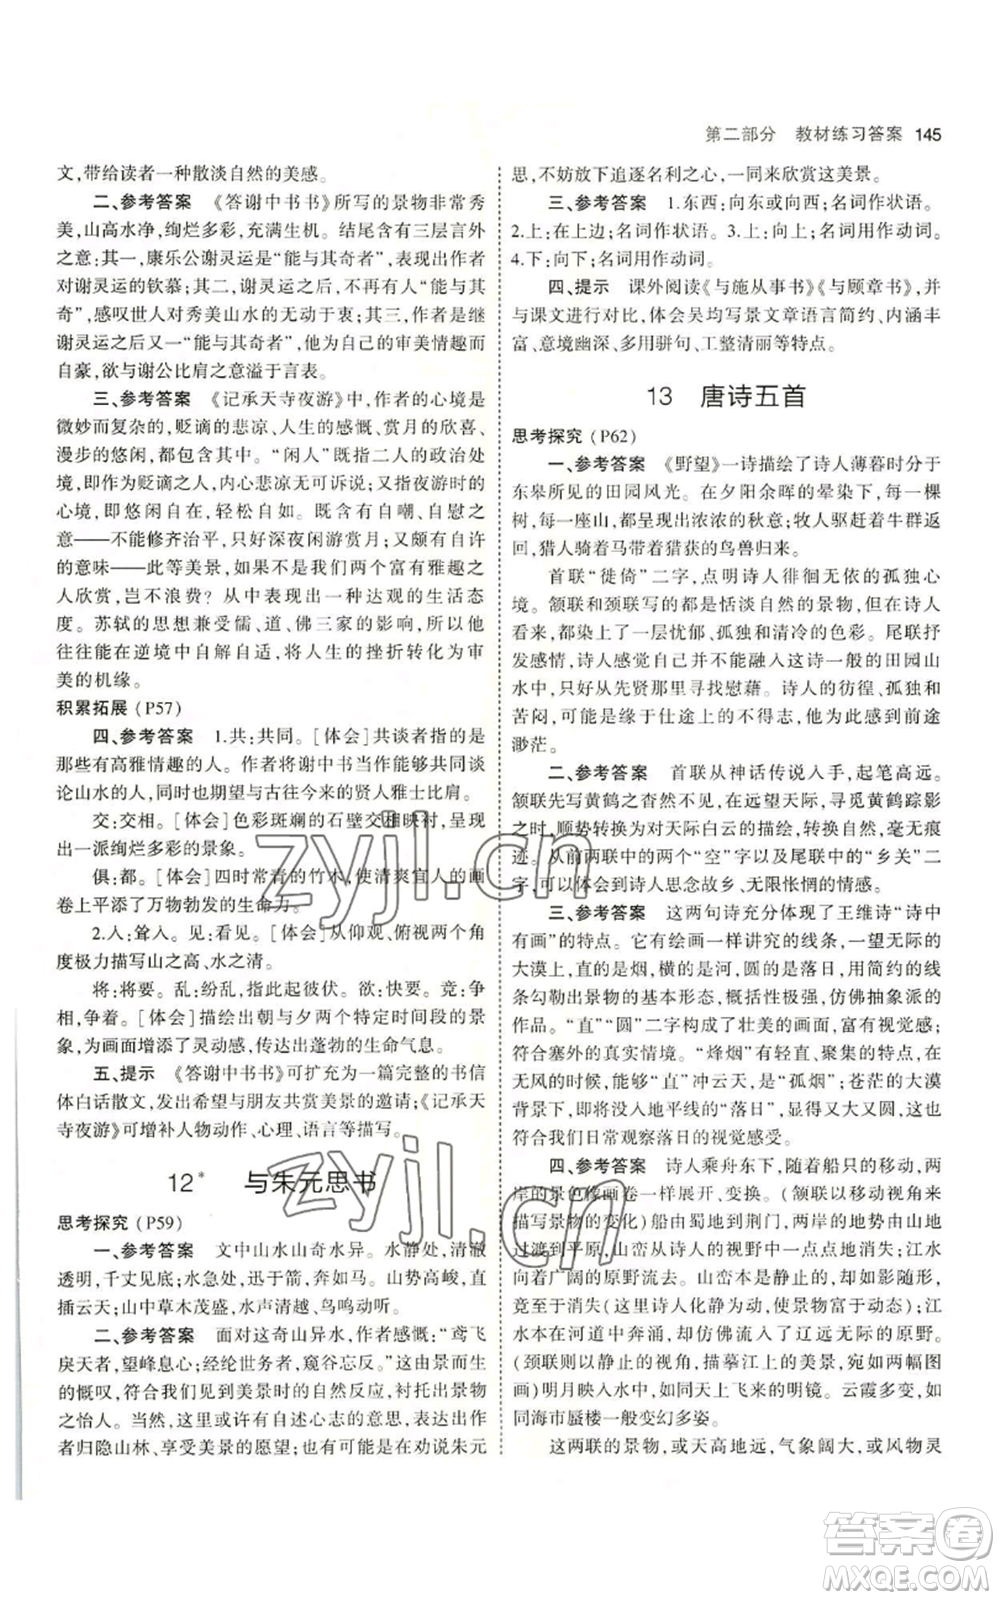 第二部分 教材练习答案 145
文,带给读者一种散淡自然的美感。
二、参考答案 《答谢中书书》所写的景物非常秀
美,山高水净,绚烂多彩,充满生机。结尾含有三层言外
之意:其一,康乐公谢灵运是“能与其奇者”,表达作者对
谢灵运的钦慕;其二,谢灵运之后,不再有人“能与其
奇”,感叹世人对秀美山水的无动于衷;其三,作者是继
谢灵运之后又一“能与其奇者”,他为自己的审美情趣而
自豪,欲与谢公比肩之意溢于言表。
三、参考答案 《记承天寺夜游》中,作者的心境是
微妙而复杂的,贬谪的悲凉、人生的感慨、赏月的欣喜、
漫步的悠闲,都包含其中。“闲人”既指二人的政治处
境,是说因贬谪而致,内心悲凉无可诉说;又指夜游时的
心境,即悠闲自在,轻松自如。从中既有自嘲、自慰之
意——不能修齐治平,只好深夜闲游赏月;又颇有自许
的意味——此等美景,如果没有我们两个富有雅趣之
人欣赏,岂不浪费?从中表现出一种达观的生活态
度。苏轼的思想兼受儒、道、佛三家的影响,他往
往往能在逆境中自解自适,将人生的挫折转化为审
美的机缘。
积累拓展(P57)
四、参考答案 1.共:共同。[体会]共谈者指的是和
那些有高雅情趣的人。作者将谢中书当作能够谈
论山水的人,同时也期望与古往今来的贤人雅士比肩。
交:交相。[体会]色彩斑斓的石壁交相映衬,呈现
出一派绚烂多彩的景象。
俱:都。[体会]四时常青的竹木,给清爽宜人的画
卷上平添了万物勃发的生命力。
2.入:耸入。见:看见。[体会]从仰观、俯视两个角
度极力描写山之高、水之清。
将:将要。乱:纷乱,此起彼伏。欲:快要。竞:争
相,争着。[体会]描绘出朝与夕两个特定时间的景
象,为画面增添了灵动感,传达出蓬勃的生命气息。
五、提示 《答谢中书书》可扩充为一篇完整的书信
体白话散文,发出希望与朋友共赏美景的邀请;《记承天
寺夜游》可增补人物动作、心理、语言等描写。
12* 与朱元思书
思考探究(P59)
一、参考答案 文中山水山奇水异。水静处,清澈
透明,千丈见底;水急处,迅疾如箭,奔如马。山势高峻,直
插云天;山中草木茂盛,水声清越、鸟鸣动听。
二、参考答案 面对这奇山异水,作者感慨:“鸢飞
戾天者,望峰息心;经纶世务者,窥谷忘反。”这由景而生
的慨叹,既是作者面对美景的自然反应,衬托出了景物
之怡人。当然,这里或许含有自述心志的意思,表达出作
者归隐山林、享受美景的愿望;也有可能是在劝说朱元
思,不妨放下追逐名利之心,一同来欣赏这美景。
三、参考答案 1.东西:向东或向西;名词作状语。
2.上:在上边;名词作状语。3.上:向上;名词用作动词。
4.下:向下;名词用作动词。
四、提示 课外阅读《与施从事书》《与顾章书》,并
与课文进行对比,体会吴均写景文章语言简约、内涵丰
富、意境幽深、多用骈句、工整清丽等特点。
13 唐诗五首
思考探究(P62)
一、参考答案 《野望》一诗描绘了诗人薄暮时分于
东皋所见的田园风光。在夕阳余晖的晕染下,每一棵
树,每一座山,都呈现出浓浓的秋意;牧人驱赶着牛群返
回,猎人骑着马带着猎获的鸟兽归来。
首联“徙倚”二字,点明诗人徘徊无依的孤独心
境。颔联和颈联写的都是恬淡自然的景物,但在诗人
看来,都染上了一层忧郁、孤独和清冷的色彩。尾联抒
发感情,诗人似乎并不能融入这诗一般的田园山
水中,只好从先贤那里寻找慰藉。诗人的彷徨、孤独和
苦闷,可能是缘于仕途上的不得志,也可能是感到前途
渺茫。
二、参考答案 首联从神话传说入手,起笔高远。
颔联续写黄鹤之杳然不见,以望远天际、寻觅黄鹤踪影
之时,顺势转换为对天际白云的描绘,转换自然,毫无痕
迹。从前两联中的两个“空”字以及尾联中的“乡关”二
字,可以体会到诗人思念故乡、无限怅惘的情感。
三、参考答案 这两句诗充分体现了王维诗“诗中
有画”的特点。它有绘画一样讲究的线条,一望无际的
大漠上,直的是烟,横的是河,圆的是日,用简约的线
条勾勒出景物的基本形态,仿佛抽象派的
作品。“直”“圆”二字构成了壮美的画面,富有视觉感;
符合塞外的真实情境。“烽烟”有轻直、聚集的特点,在
无风的时候,能够“直”冲云天,是以“孤烟”;苍茫的大漠
背景下,即将没入地平线的“落日”,显得又大又圆,这
也符合我们日常观察落日的视觉感受。
四、参考答案 诗人乘舟东下,随着船只的移动,两
岸的景色像画卷一样展开、变换。(颔联以移动视角来
描写景物的变化)船由蜀地到荆门,两岸的地势由山地
过渡到平原,山峦从诗人的视野中一点点消退;江水
向着广阔的原野流去。山峦起初还在,如影随形,
竟至于消失(诗人化静为动,使景物富于动态);江
水本在河道中奔涌,却仿佛流入了辽远无际的原野。
(颈联则以静止的视角,描摹江上的美景,宛如两幅图
画)明月映入水中,就如同天上飞来的明镜。云霞多变,如
同海市蜃楼一般变幻多姿。
这两联的景物,或天高地远,气象阔大,或风物灵
zyjl.cn
zyjl.cn
答案圈
MXQE.COM